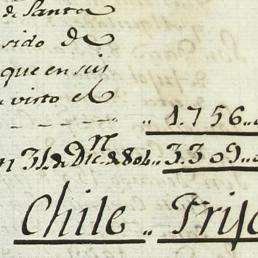 de Santa
sido de
que en sus
visto el
1.756..
n 31 de Dic.n de 804.. 3.309..
Chile .. Trig